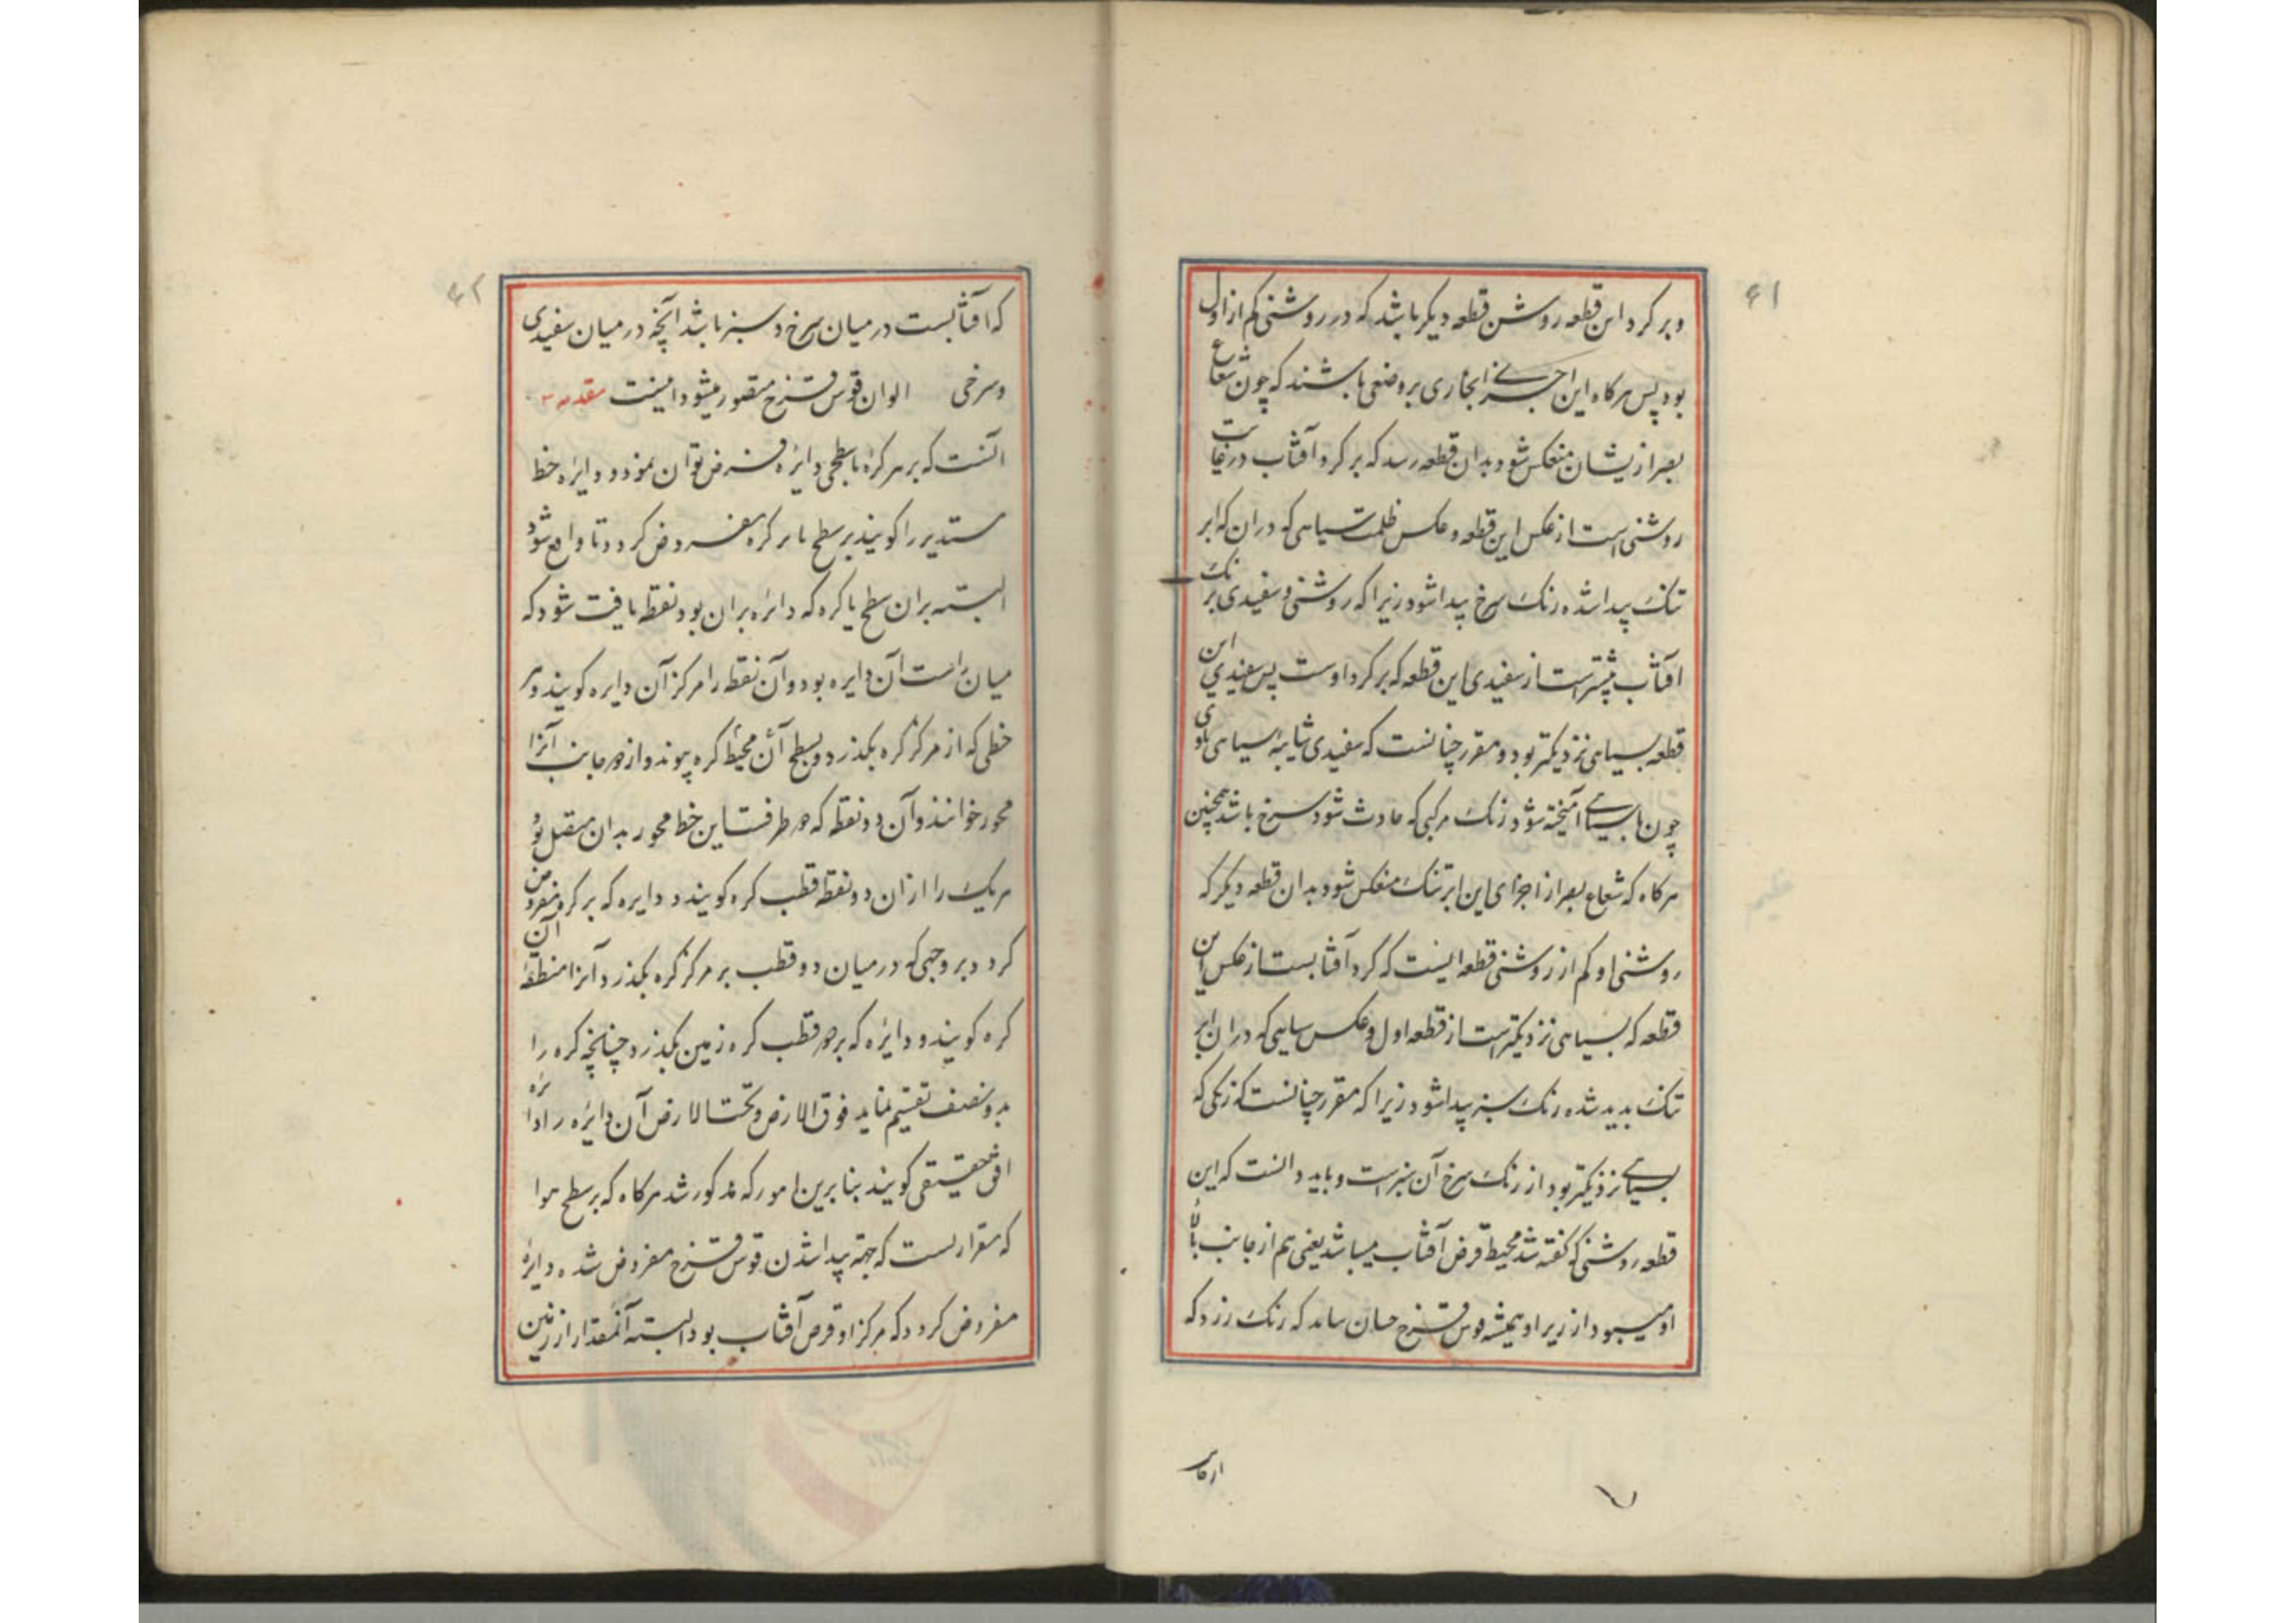 ۶۱
و بر کرد این قطعه روشن قطعه دیکر باشد که در روشنی کم از اول
بود پس هرکاه این اجزای بخاری بر وضعی باشند که چون شعاع
بصر ازیشان منعکس شود بدان قطعه رسد که بر کرد آفتاب در غایت
روشنی است از عکس این قطعه و عکس ظلمت سیاهی که دران که ابر
تنک پیدا شده رنک سرخ پیدا شود زیرا که روشنی و سفیدی بر
آفتاب بیشتر است از سفیدی این قطعه که بر کرد اوست پس سفیدی این
قطعه بسیاهی نزدیکتر بود و مقرر چنانست که سفیدی
چون با سیاهی آمیخته شود رنک مرکبی که حادث شود سرخ باشد همچنین
هرکاه که شعاع بصر از اجزای این ابر تنک منعکس شود بدان قطعه دیکر که
روشنی او کم از روشنی قطعه ایست که کرد آفتابست از عکس این
قطعه که بسیاهی نزدیکتر است از قطعه اول و عکس سیاهی که دران ابر
تنک پدید شده رنک سبز پیدا شود زیرا که مقرر چنانست که رنکی که
بسیاهی نزدیکتر بود از رنک سرخ آن سبز است و باید دانست که این
قطعه روشنی که کفته شد محیط قرص آفتاب میباشد یعنی هم از جانب بالا
او میبود از زیر او همیشه قوس قزح که رنک زرد که
۶۲
که آفتابست در میان سرخ و سبز باشد آنچه در میان سفیدی
و سرخی الوان قوس قزح متصور میشود اینست مقدمه
آنست که بر هر کره یا سطحی دایره فرض توان نمود و دایره خط
مستدیر را کویند بر سطح یا بر کره مفروض کردد تا واقع شود
البته بران سطح یا کره که دایره بران بود نقطه یافت شود که
میان راست آن دایره بود و آن نقطه را مرکز آن دایره کویند و هر
خطی که از مرکز کره بکذرد و بسطح آن محیط کره پیوندد از هر دو جانب آنرا
محور خوانند و آن دو نقطه که دو طرفست این خط محور بدان متصل بود
هریک را ازان دو نقطه قطب کره کویند و دایره که بر کره مفروض
کردد بر وجهی که در میان دو قطب بر مرکز کره بکذرد آنرا منطقه آن
کره کویند و دایره که بر دو قطب کره زمین بکذرد چنانچه کره را
بدو نصف تقسیم نماید فوق الارض و تحت الارض آن دایره را دایره
افق حقیقی کویند بنابرین امور که مذکور شد هرکاه که بر سطح هوا
که مقرر است که جهة پیدا شدن قوس قزح مفروض شده دایره
مفروض کردد که مرکز او قرص آفتاب بود البته آنمقدار از زمین